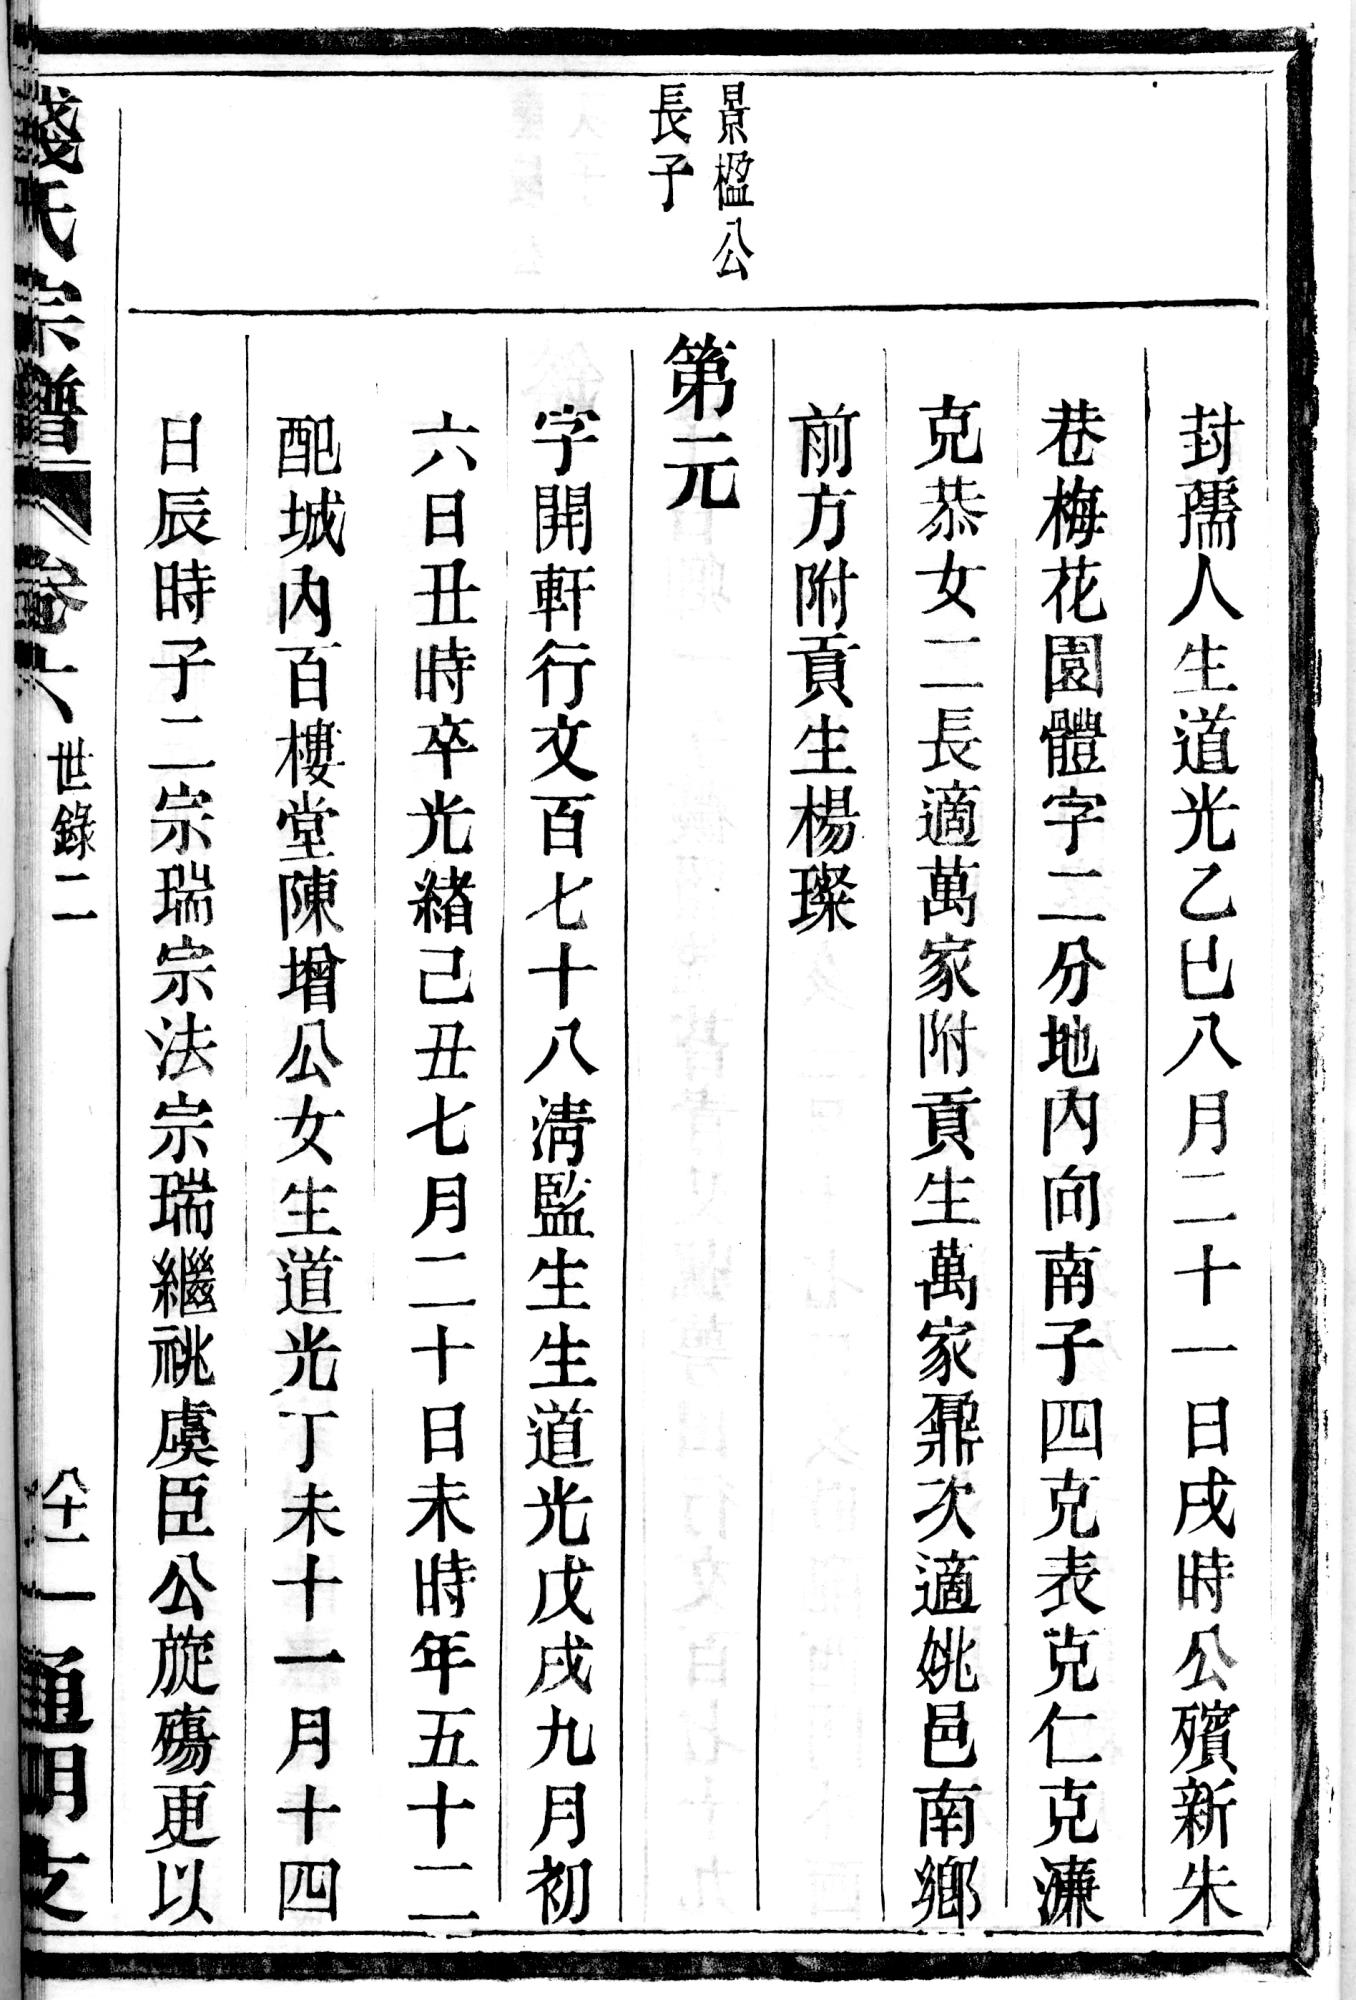 景楹公
長子
封孺人生道光乙巳八月二十一日戌時公殯新朱
巷梅花園體字二分地內向南子四克表克仁克濂
克恭女二長適萬家附貢生萬家鼐次適姚邑南鄉
前方附貢生楊璨
第元
字開軒行文百七十八淸監生生道光戊戌九月初
六日丑時卒光緒己丑七月二十日未時年五十二
配城內百樓堂陳增公女生道光丁未十一月十四
日辰時子二宗瑞宗法宗瑞繼祧虞臣公旋殤更以
錢氏宗譜
卷六
世錄二
八十二
通明支